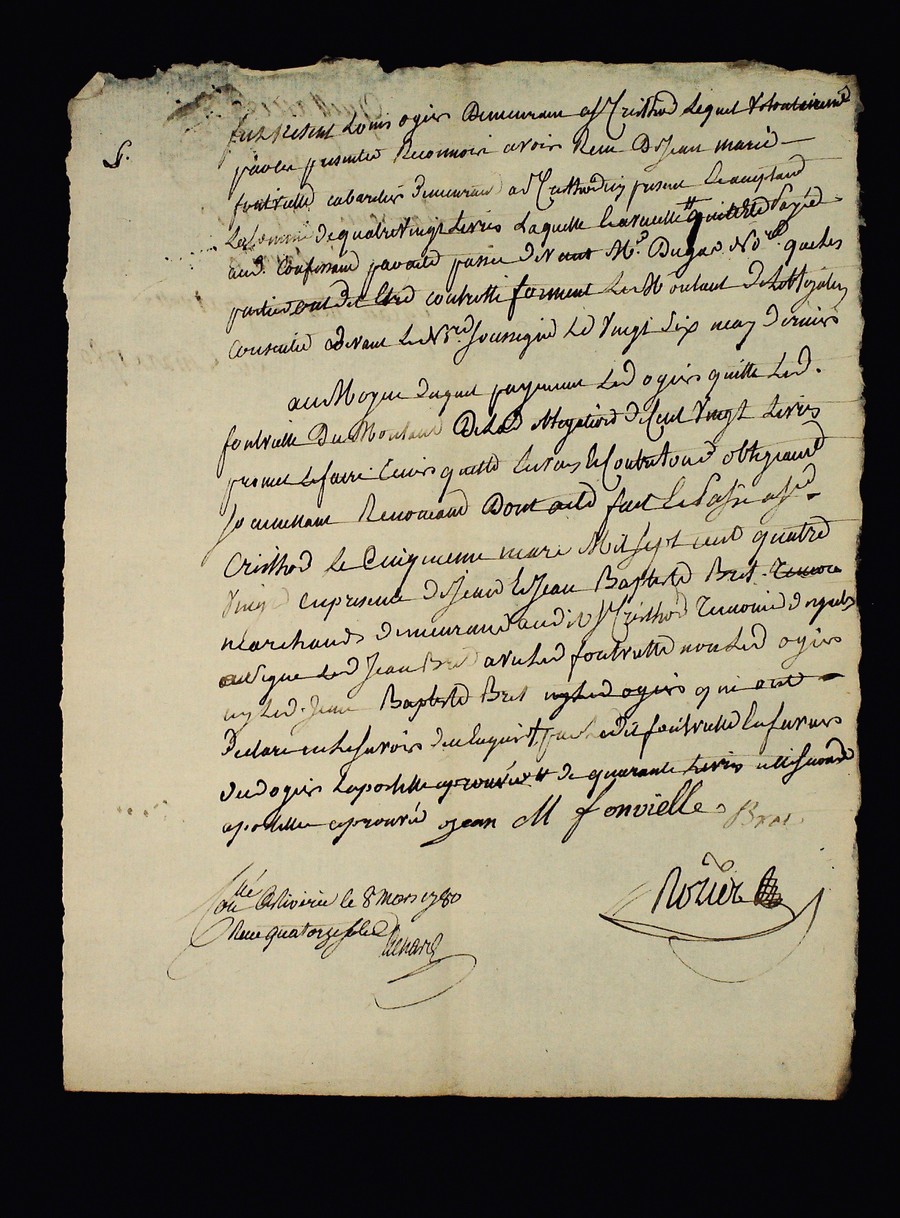 fut present Louis ogier Demeurant a St Cristhod Lequel Volontairement
par ces presentes Reconnois avoir Receu De Jean marie
fontvielle cabaretier demeurant a St Cristhod icy present acceptant
La somme De quatre Vingt Livres Laquelle
aud. Confessant par acte passé devant Me. Dugas Nore. que les
parties ont dit Etre controllé forment Le Montant De Lobligation
Consentie devant Le Nore. soussigné Le Vingt six may dernier
au Moyen duquel payement Led ogier quitte Led.
fontvielle Du Montant De Lad obligation de Cent Vingt Livres
promet Le faire tenir quitte Envers Et Contre tous obligeant
soumettant Renonceant Dont acte fait Et Passé a St
Cristhod Le Cinquieme mars Mil sept cent quatre
Vingt en presence de Jean Et Jean Baptiste Bret
marchands demeurant audit St Cristhod Temoins desquels
a signe Led Jean Bret avec Led fontvielle non Led ogier
ny Led. Jean Baptiste Bret ny Led ogier qui ont
Declaré ne Le savoir de ce Enquis par Ledit fontvielle En faveur
dud ogier Lapostille aprouvée de quarante Livres
apostille aprouvé Jean M fonvielle Bret
Rozier
Collé a Cervieres le 8 Mars 1780
Receu quatorze sols
Renard